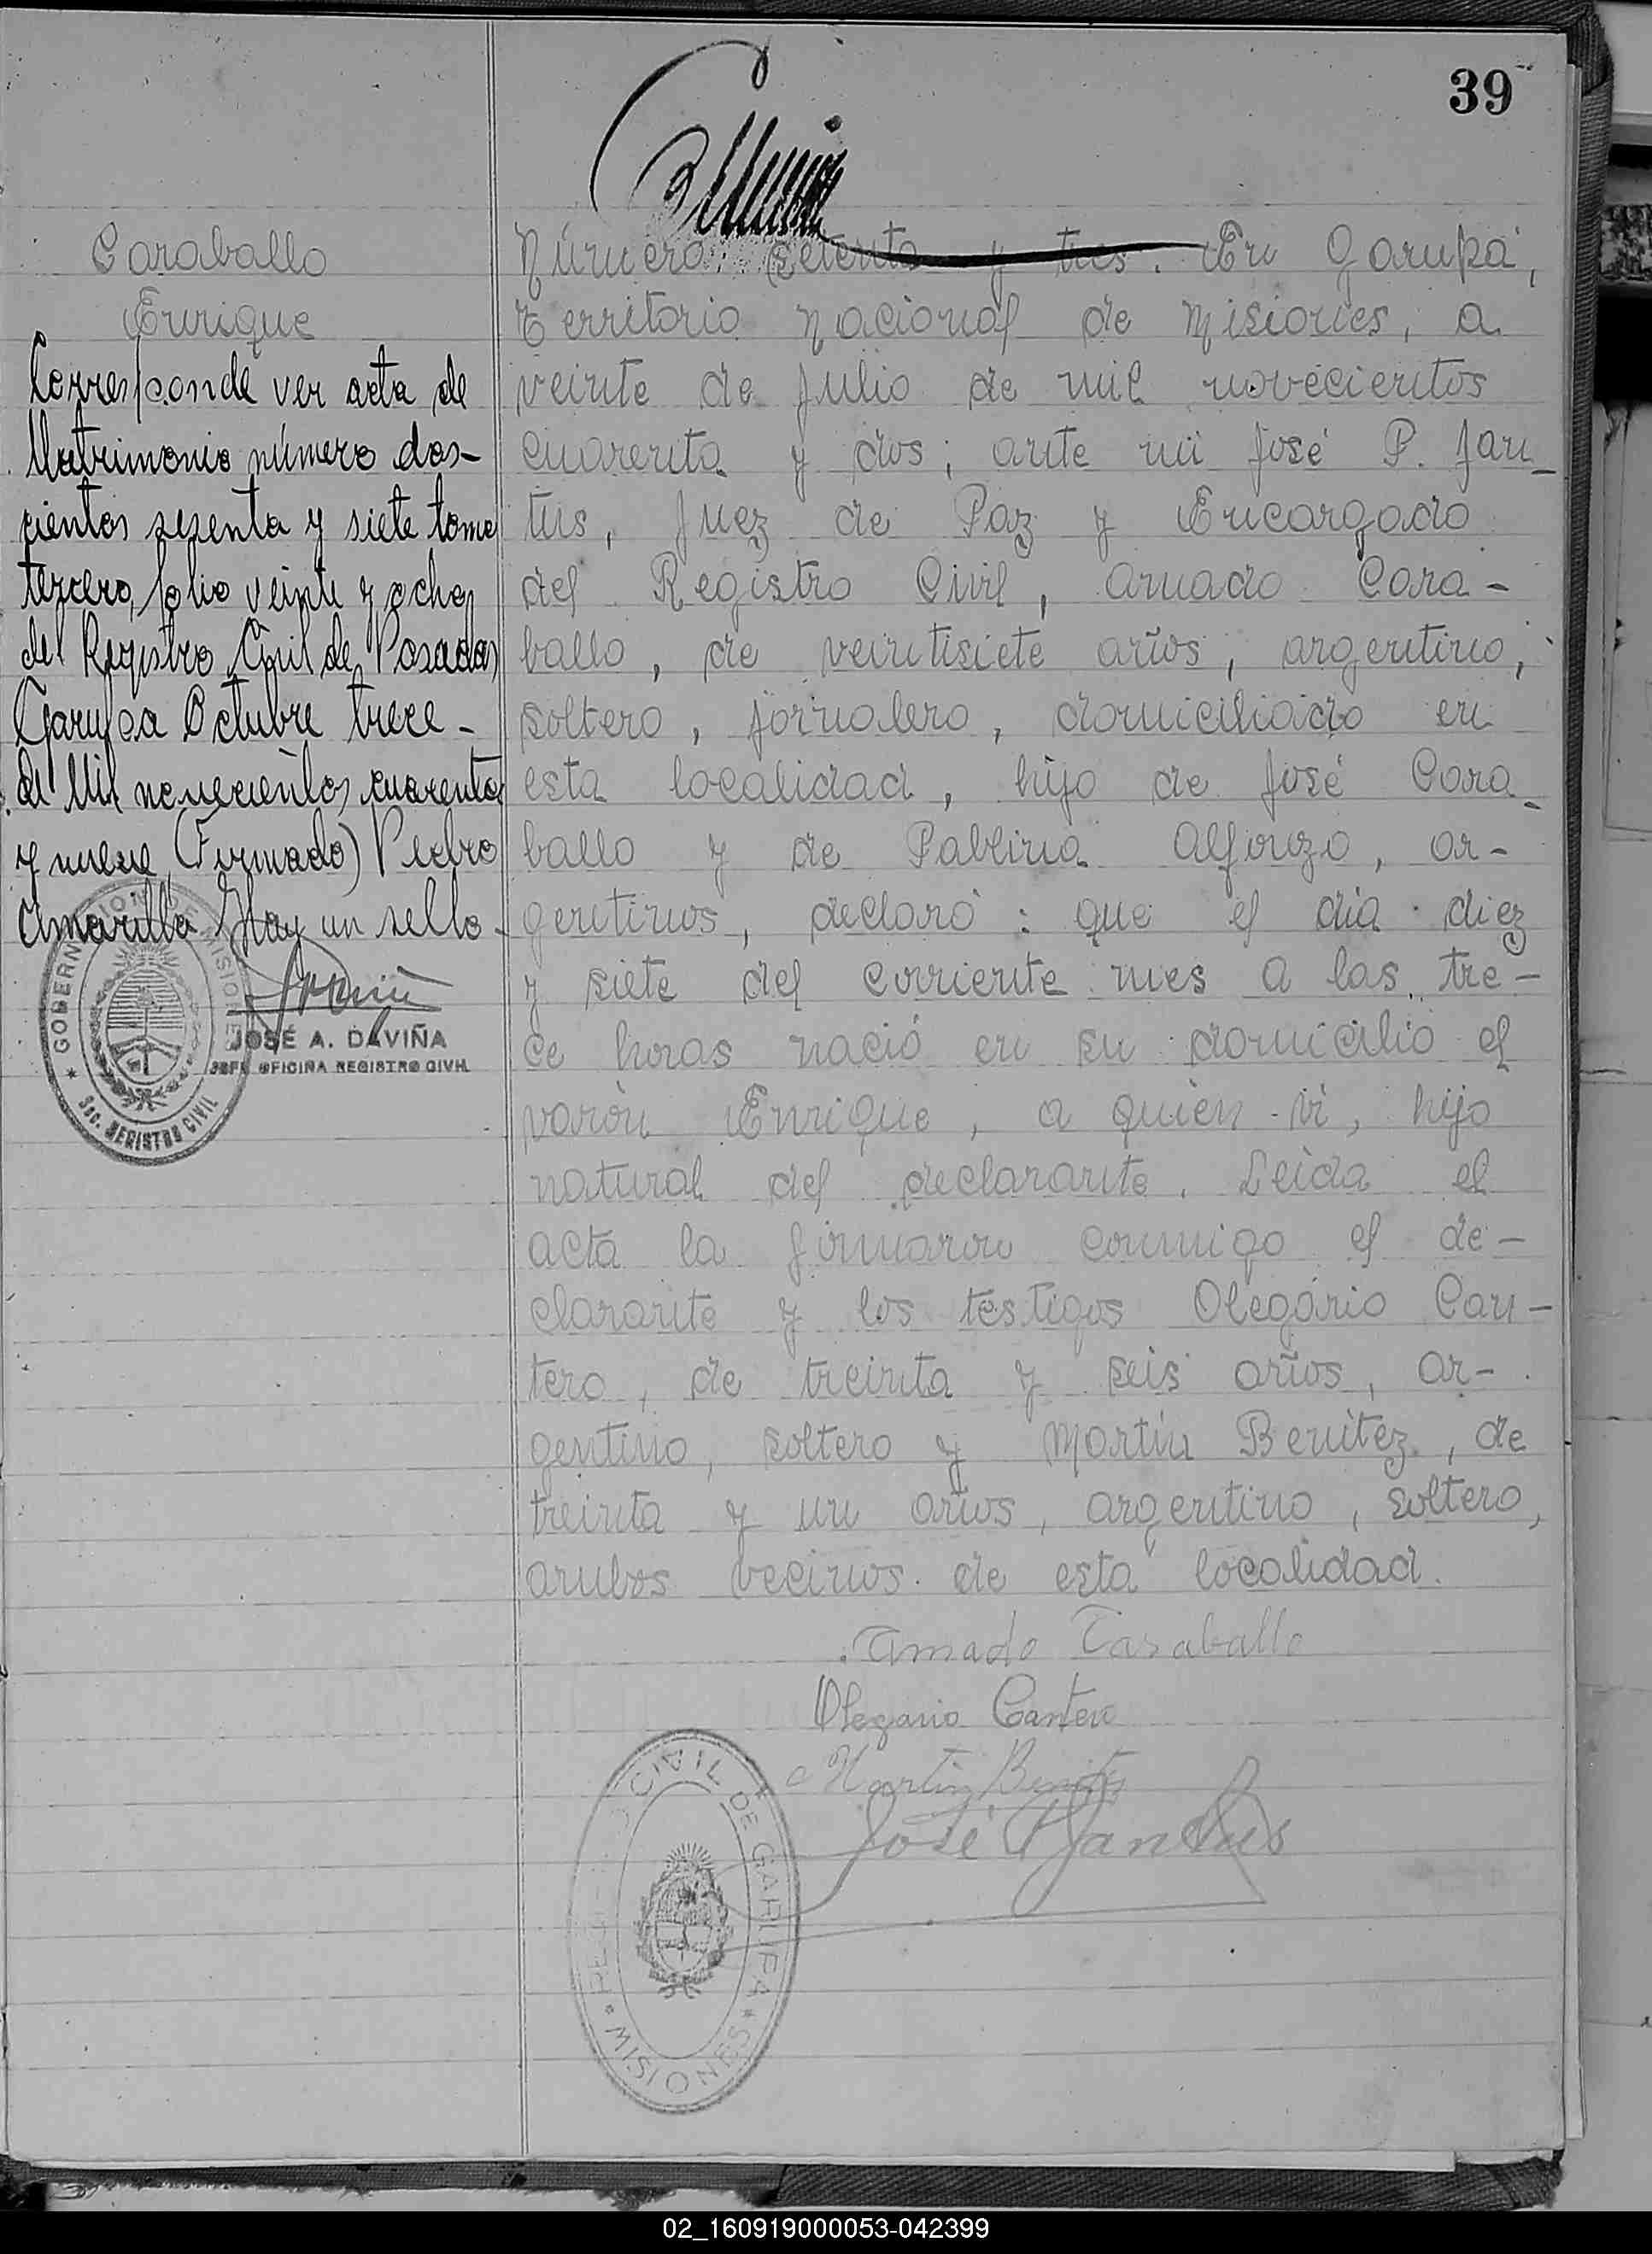 39
Caraballo
Enrique
Corresponde ver acta de
Matrimonio número dos-
cientos sesenta y siete tomo
tercero, folio veinte y ocho,
del Registro Civil de Posadas
Garupa Octubre trece -
de Mil novecientos cuarenta
y nueve (Firmado) Pedro
Amarilla Hay un sello -
GOBERNACION DE MISIONES
SEC. REGISTRO CIVIL
JOSÉ A. DAVIÑA
JEFE OFICINA REGISTRO CIVIL
Número setenta y tres. En Garupá,
Territorio Nacional de Misiones, a
veinte de Julio de mil novecientos
cuarenta y dos; ante mí José P. Jan-
tus, Juez de Paz y Encargado
del Registro Civil, Amado Cara-
ballo, de veintisiete años, argentino,
soltero, jornalero, domiciliado en
esta localidad, hijo de José Cara-
ballo y de Pablina Alfonzo, ar-
gentinos, declaró: que el día diez
y siete del corriente mes a las tre-
ce horas nació en su domicilio el
varón Enrique, a quien vi, hijo
natural del declarante. Leida el
acta la firmaron conmigo el de-
clarante y los testigos Olegario Can-
tero, de treinta y seis años, ar-
gentino, soltero y Martín Benítez, de
treinta y un años, argentino, soltero,
ambos vecinos de esta localidad.
Amado Caraballo
Olegario Cantero
Martin Benitez
José P Jantus
CIVIL DE GARUPA
MISIONES
02_160919000053-042399